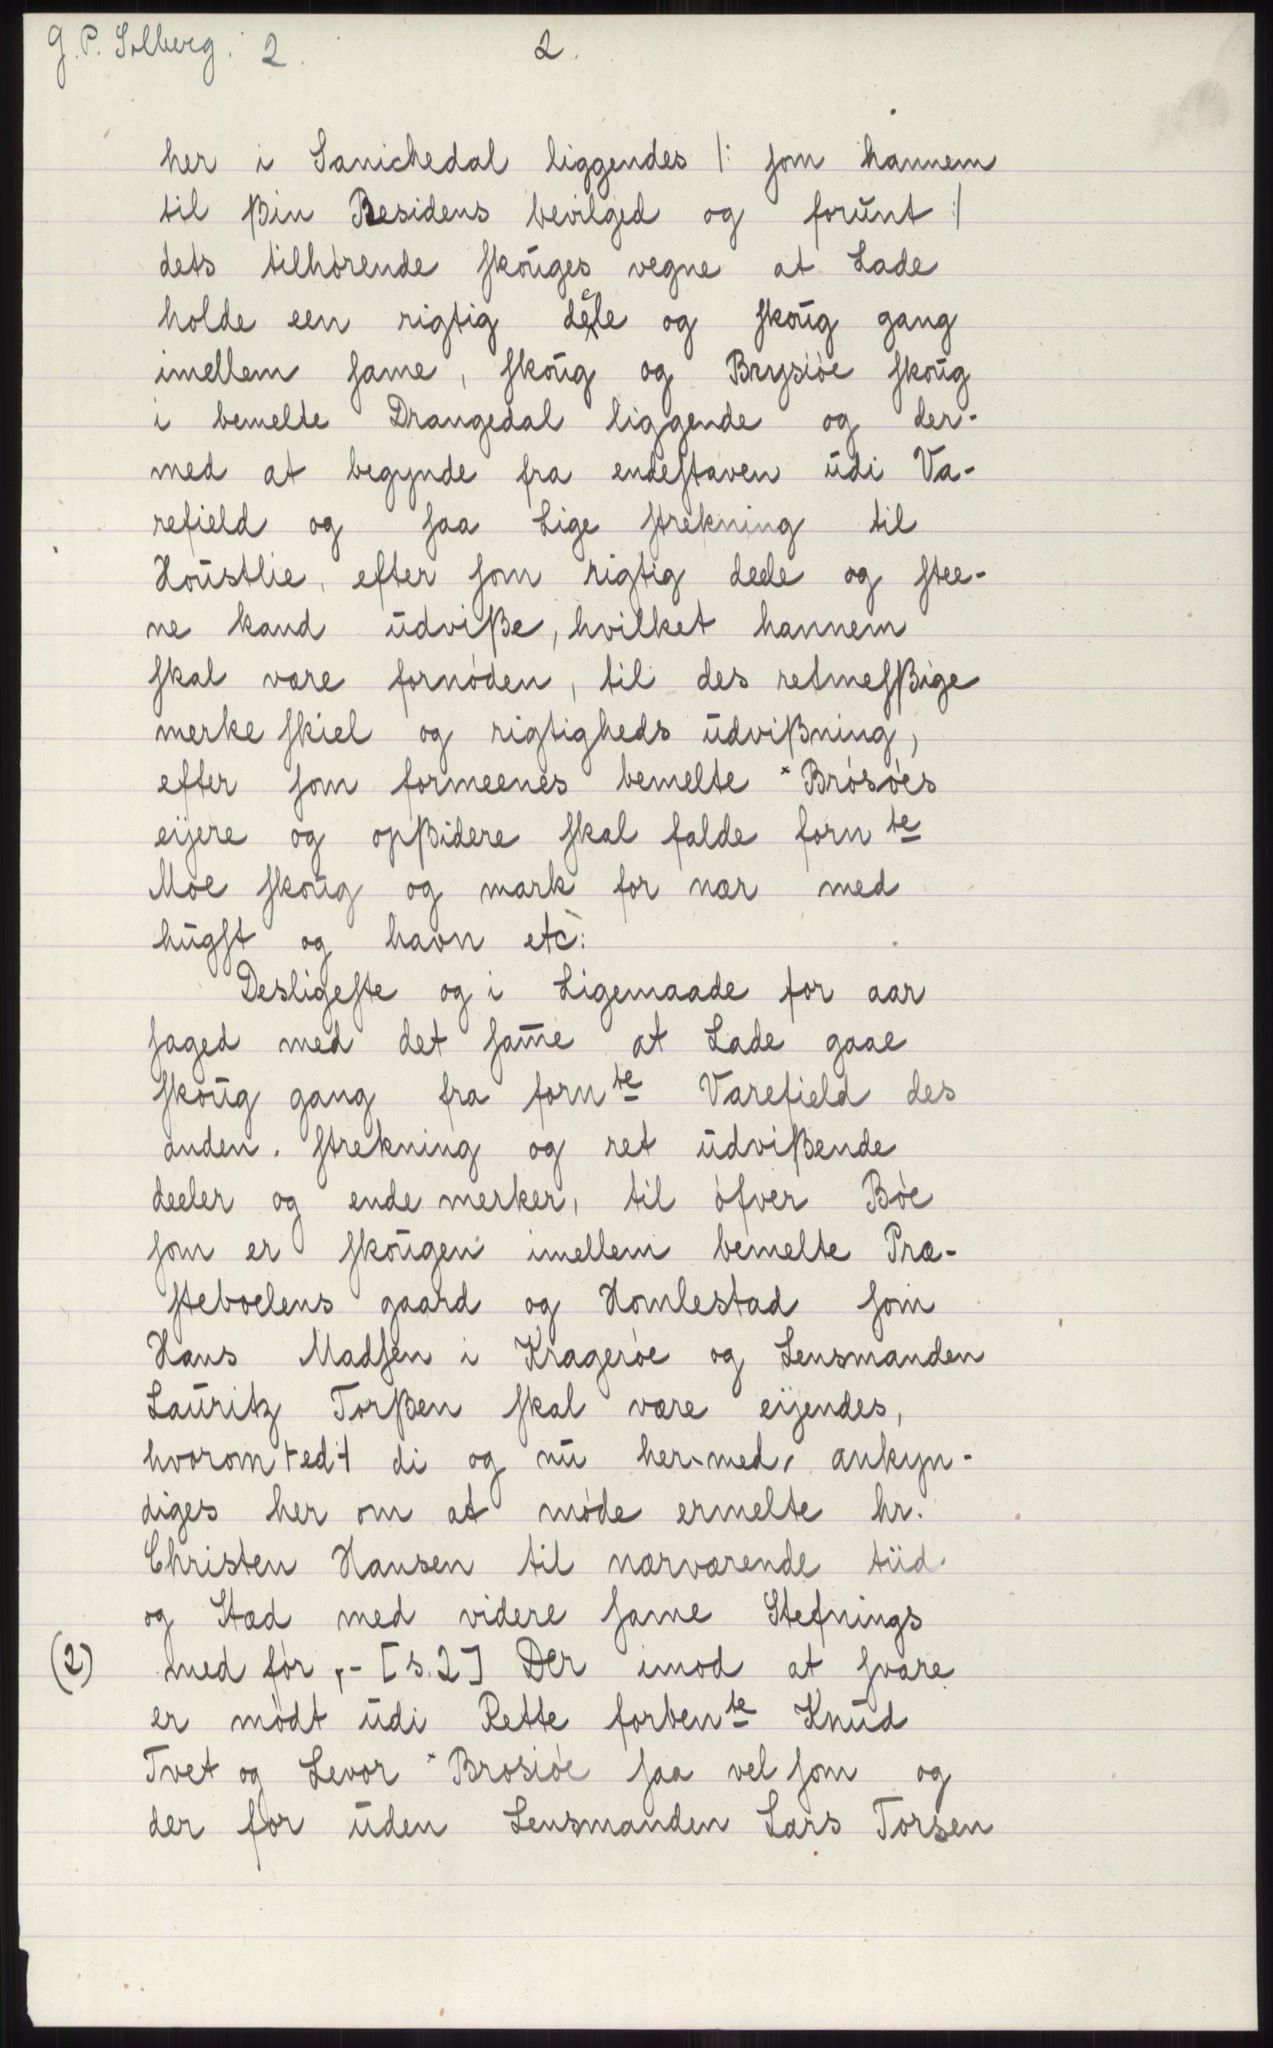 G. P. Solberg. 2.
2.
her i Sanichedal liggendes /: som hannem
til ßin Residens bevilged og forunt :/
dets tilhørende skoūges vegne at Lade
holde een rigtig deele og skoūg gang
imellem same, skoūg og Brysiøe skoūg
i bemelte Drangedal liggende og der-
med at begynde fra endestaven ūdi Va-
refield og saa Lige strekning til
Hoūstlie, efter som rigtig dede og stee-
ne kand ūdviße, hvilket hannem
skal være fornøden, til des retmesßige
merke skiel og rigtigheds ūdvißning,
efter som formeenes bemelte *Brøsøes
eijere og opßidere skal falde fornte
Moe skoūg og mark for nær med
hūgst og havn etc:
Desligeste og i Ligemaade for aar
saged med det same at Lade gaae
skoūg gang fra fornte Varefield des
anden. strekning og ret ūdvißende
deeler og ende merker, til øfver Bøe
som er skoūgen imellem bemelte Præ-
steboelens gaard og Homlestad som
Hans Madsen i Kragerøe og Lensmanden
Laūritz Torßen skal være eijendes,
hvorom + ed + di og nū her med, ankyn-
diges her om at møde ermelte hr.
Christen Hansen til nærværende tiid
og Stæd med videre same Stefnings
(2) med før,- [s. 2] Der imod at svare
er mødt ūdi Rette forbente Knūd
Tvet og Levor *Brosiøe saa vel som og
der for ūden Lensmanden Lars Torsen